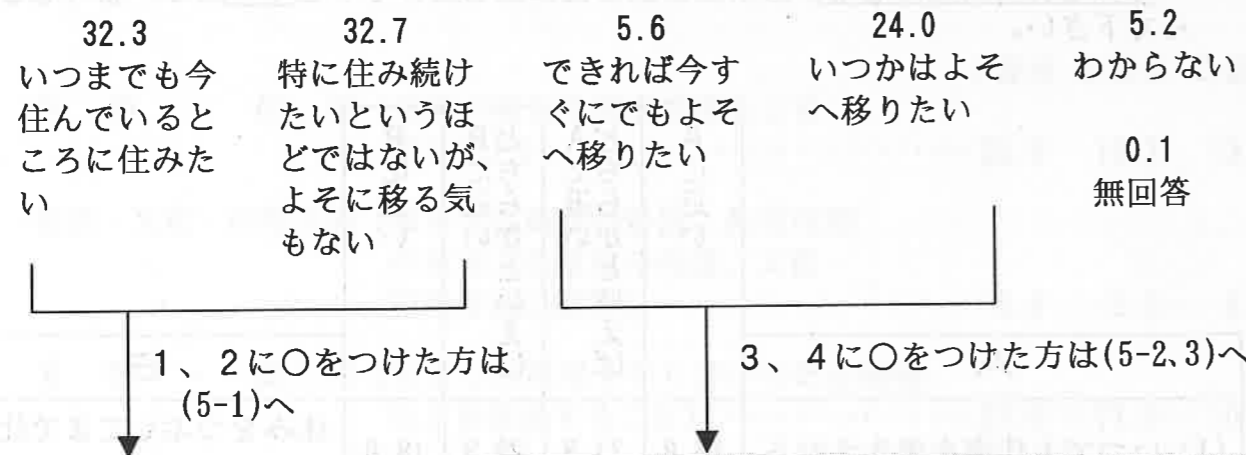 32.3
いつまでも今
住んでいると
ころに住みた
い
32.7
特に住み続け
たいというほ
どではないが、
よそに移る気
もない
5.6
できれば今す
ぐにでもよそ
へ移りたい
24.0
いつかはよそ
へ移りたい
5.2
わからない
0.1
無回答
1、2に○をつけた方は
(5-1)へ
3、4に○をつけた方は(5-2、3)へ